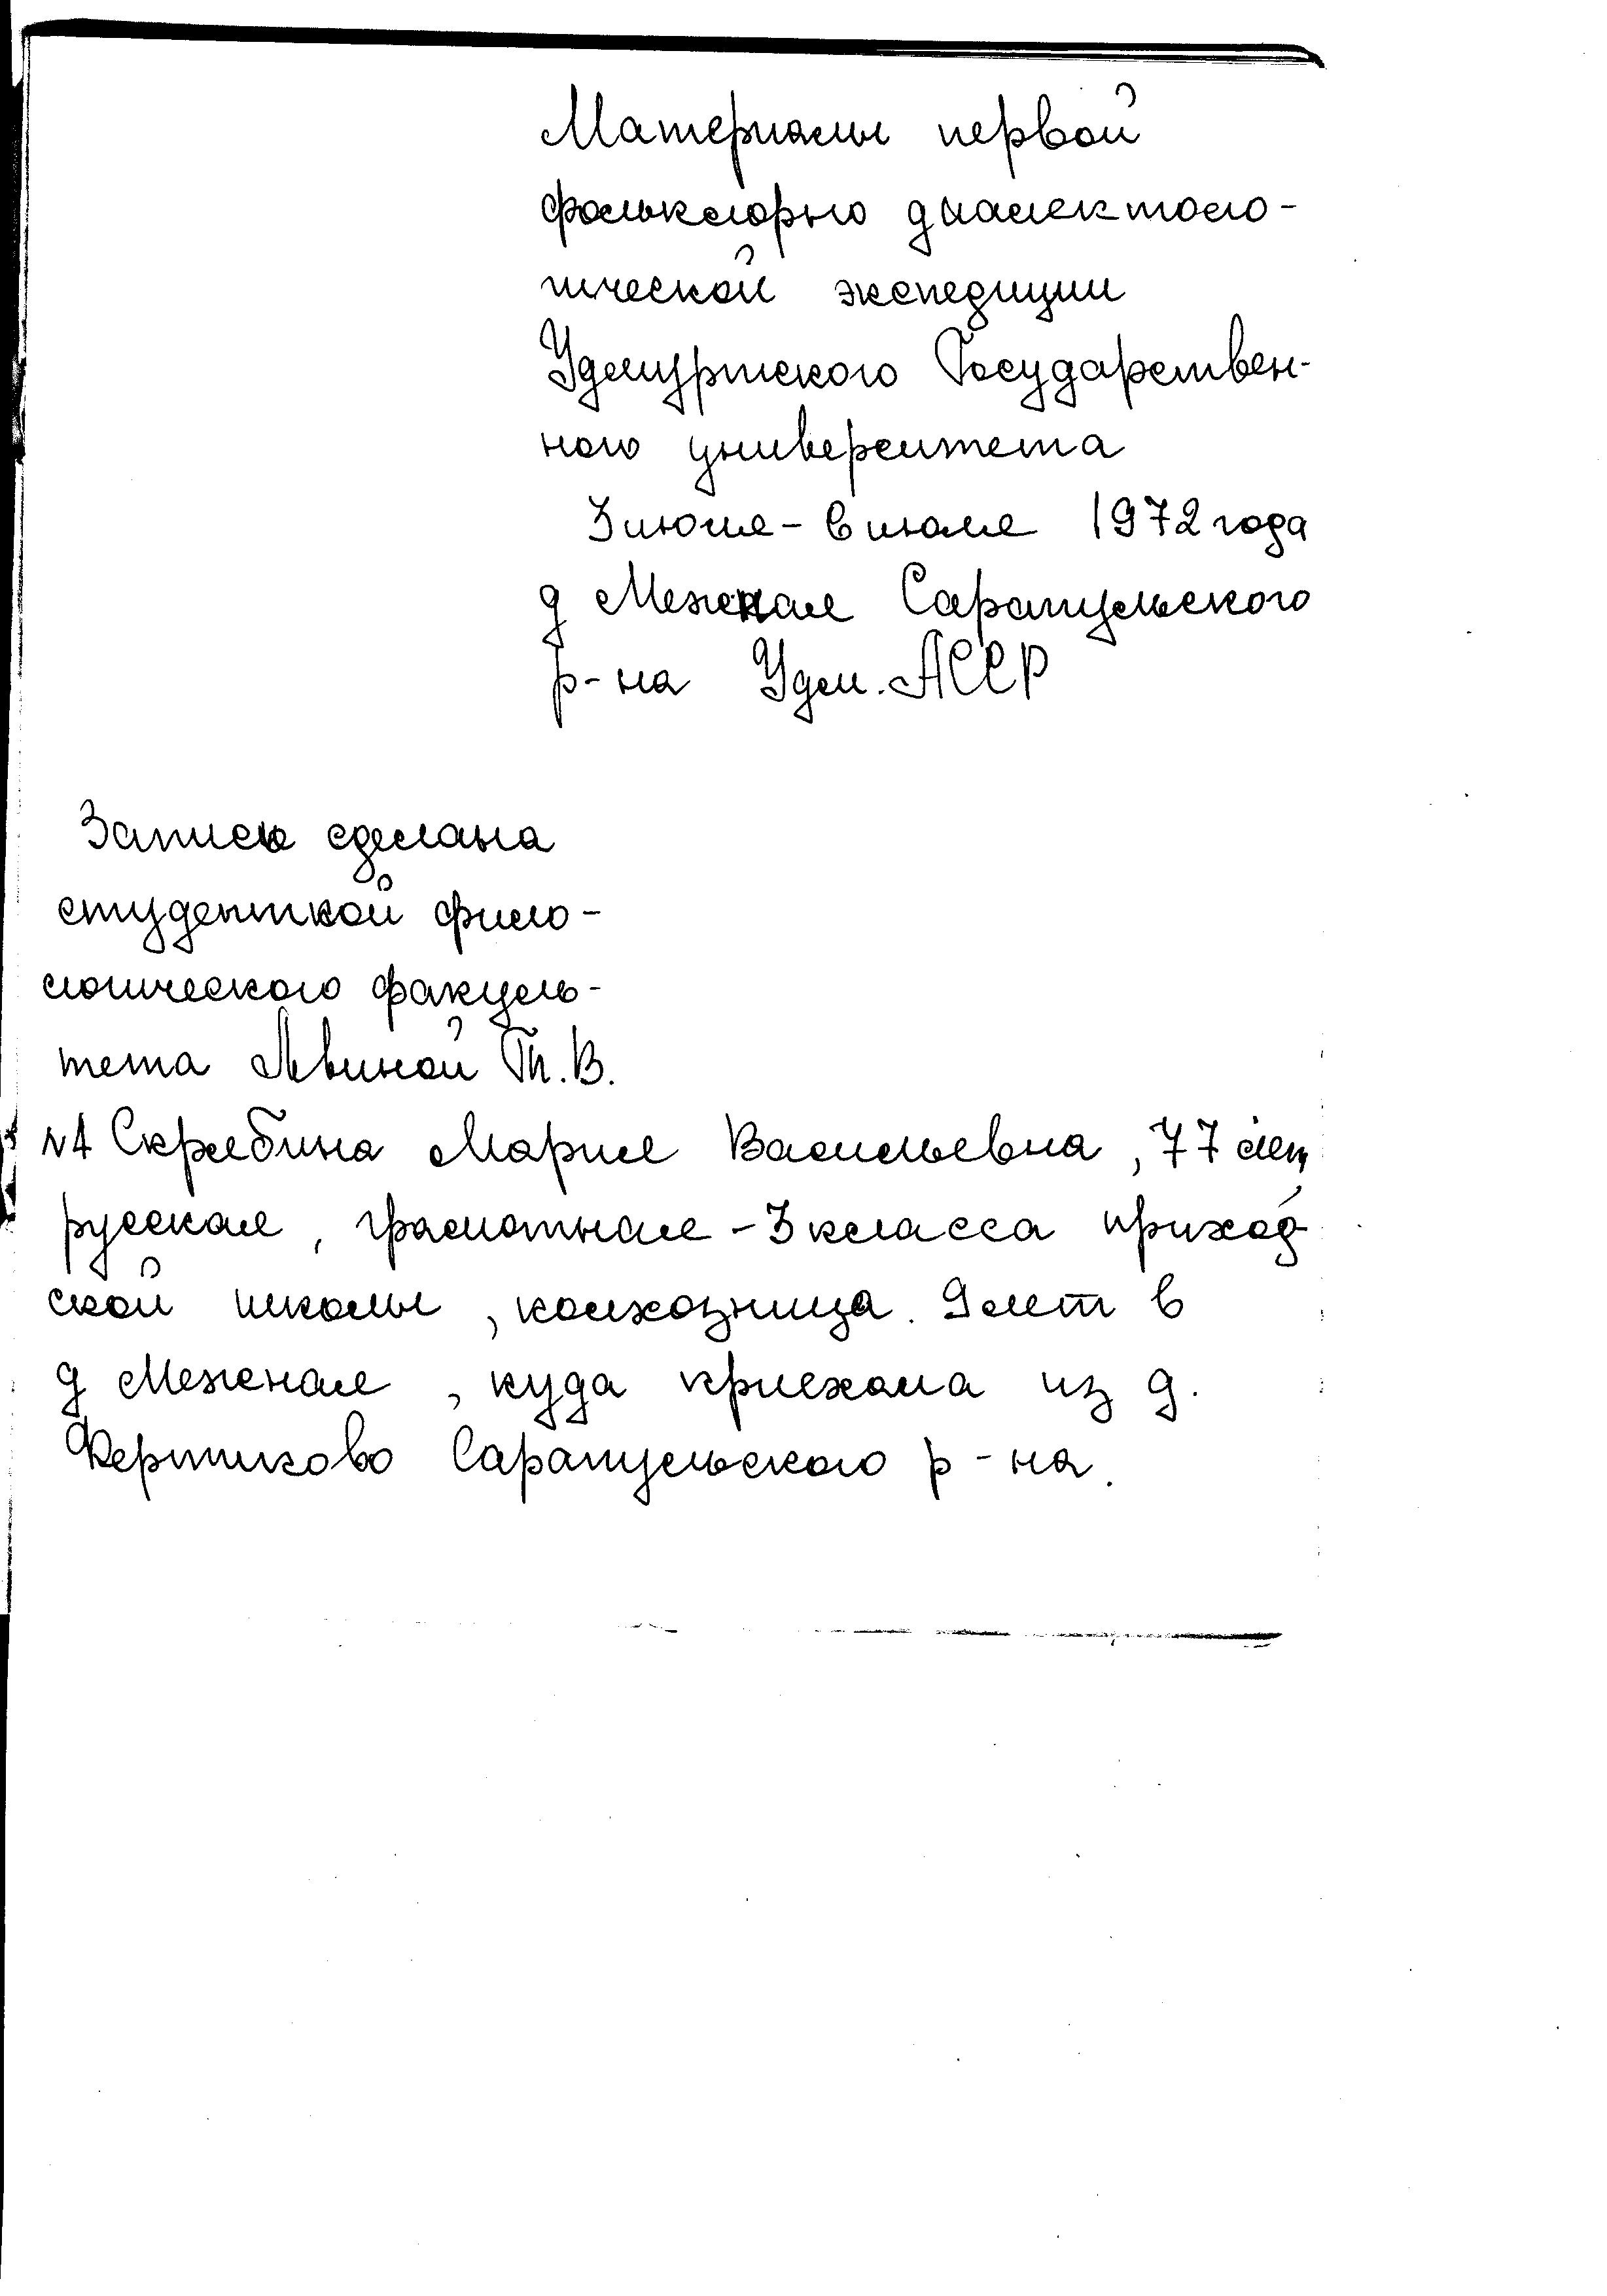 Материалы первой
фольклорно диалектоло-
гической экспедиции
Удмуртского Государствен-
ного университета
3 июля - 6 июля 1972 года
д Межная Сарапульского
р-на Удм. АССР
Запись сделана
студенткой фило-
логического факуль-
тета Львиной Т.В.
Скрябина Мария Васильевна, 77 лет,
русская, грамотная - 3 класса приход-
ской школы, колхозница. 9 лет в
д Межная, куда приехала из д.
Сарапульского р-на.